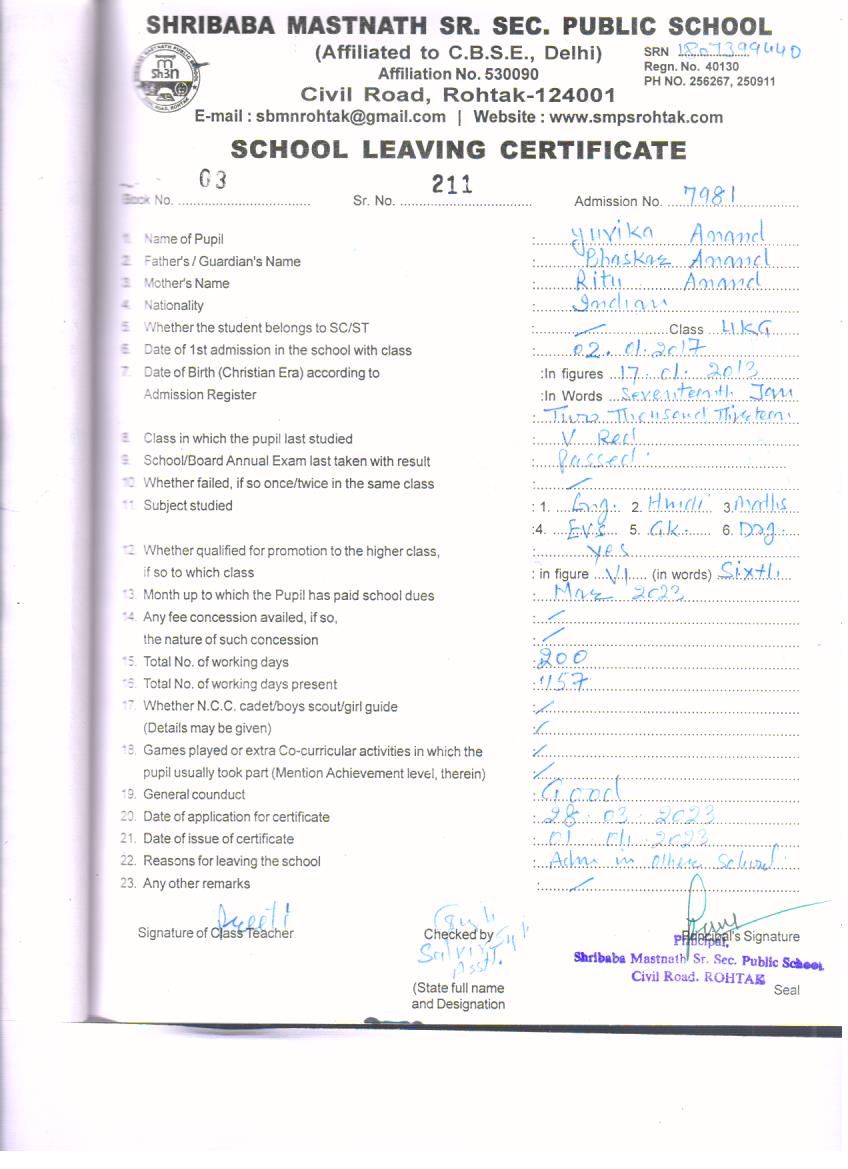 SHRIBABA MASTNATH SR. SEC. PUBLIC SCHOOL
(Affiliated to C.B.S.E., Delhi)
SRN 1807399440
Affiliation No. 530090
Regn. No. 40130
Civil Road, Rohtak-124001
PH NO. 256267, 250911
E-mail : sbmnrohtak@gmail.com | Website : www.smpsrohtak.com
SCHOOL LEAVING CERTIFICATE
Book No. 03 Sr. No. 211 Admission No. 7981
1. Name of Pupil : Yuvika Anand
2. Father's / Guardian's Name : Bhaskar Anand
3. Mother's Name : Ritu Anand
4. Nationality : Indian
5. Whether the student belongs to SC/ST : Class UKG
6. Date of 1st admission in the school with class : 02.01.2017
7. Date of Birth (Christian Era) according to :In figures 17.01.2013
Admission Register :In Words Seventeenth Jan
: Two Thousand Thirteen
8. Class in which the pupil last studied : V Red
9. School/Board Annual Exam last taken with result : Passed
10. Whether failed, if so once/twice in the same class :
11. Subject studied : 1. Eng. 2. Hindi 3. Maths
:4. EVS 5. G.K. 6. Dog.
12. Whether qualified for promotion to the higher class, : yes
if so to which class : in figure VI (in words) Sixth
13. Month up to which the Pupil has paid school dues : Mar 2023
14. Any fee concession availed, if so, :
the nature of such concession :
15. Total No. of working days : 200
16. Total No. of working days present : 157
17. Whether N.C.C. cadet/boys scout/girl guide :
(Details may be given) :
18. Games played or extra Co-curricular activities in which the :
pupil usually took part (Mention Achievement level, therein) :
19. General counduct : Good
20. Date of application for certificate : 28.03.2023
21. Date of issue of certificate : 01.04.2023
22. Reasons for leaving the school : Adm in Other School
23. Any other remarks :
Signature of Class Teacher Checked by Principal's Signature
Principal,
Shribaba Mastnath Sr. Sec. Public School
Civil Road. ROHTAK
Asstt.
(State full name Seal
and Designation